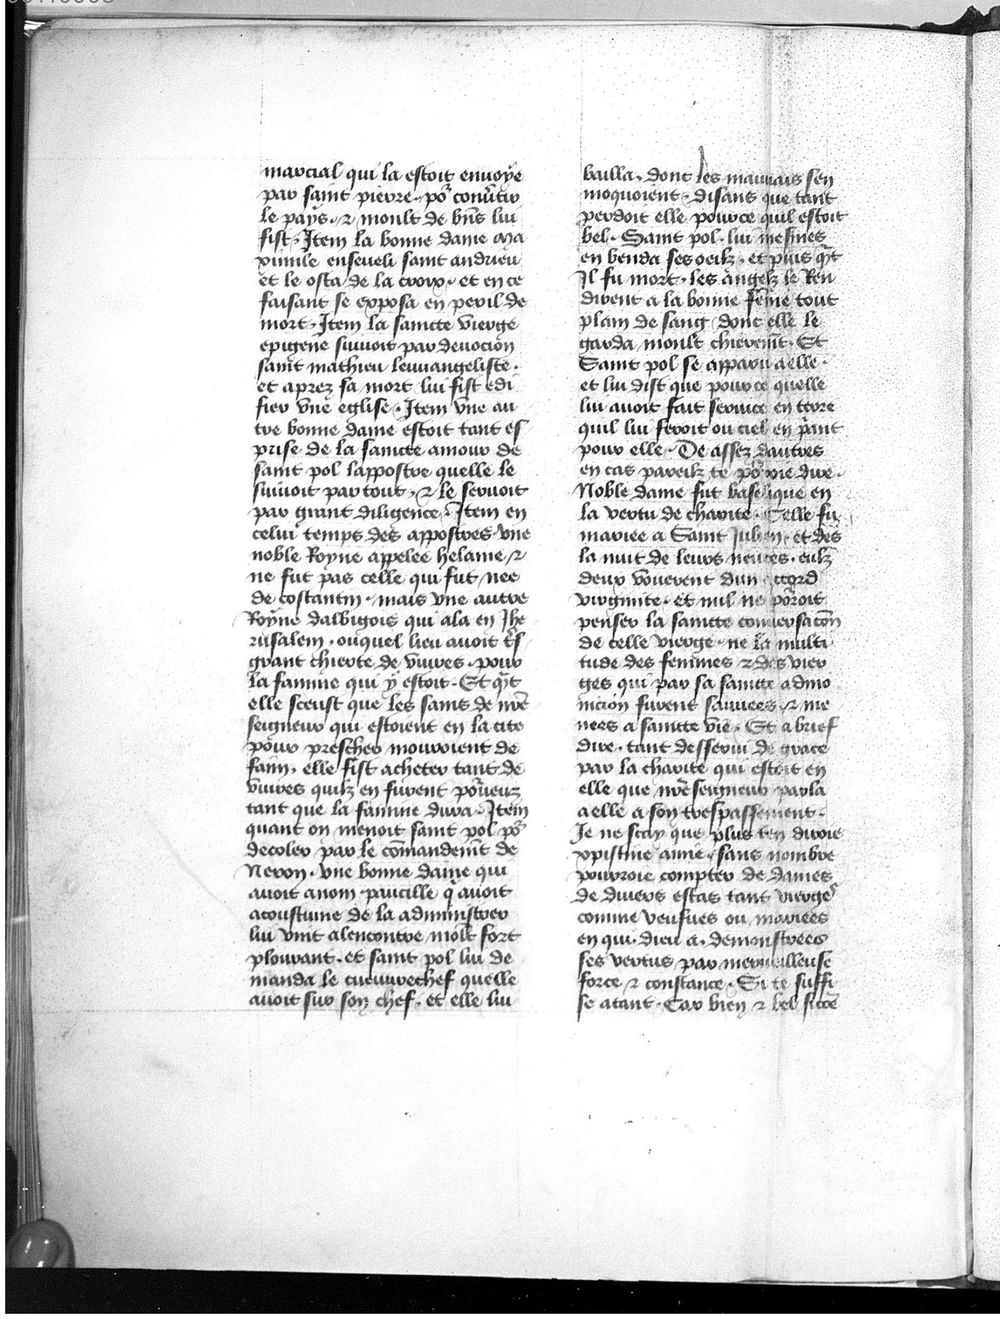 marcial qui la estoit enuoye
par saint pierre · po᷑ conũtir
le pays · ⁊ moult de bñs lui
fist · Item la bonne dame ma
ximile enseueli saint andrieu
et le osta de la croix · et en ce
faisant se exposa en peril de
mort · Item la saincte vierge
epigene siuuoit par deuocion
saint mathieu leuuangeliste ·
et aprez sa mort lui fist edi
fier vne eglise · Item vne au
tre bonne dame estoit tant es
prise de la saincte amour de
saint pol lappostre quelle le
siuuoit par tout · ⁊ le seruoit
par grant diligence · Item en
celui temps des appostres vne
noble Royne appelee helaine ⁊
ne fut pas celle qui fut nee
de costantin · mais vne autre
Royne dalbigois qui ala en Jhe
rusalem · ouquel lieu auoit t̃s
grant chierte de viures · pour
la famine qui y estoit · Et q̃t
elle sceust que les sains de nr̃e
seigneur qui estoient en la cite
pour prescher mouroient de
faim · elle fist acheter tant de
viures quilz en furent porueuz
tant que la famine dura · Item
quant on menoit saint pol po᷑
decoler par le cõmandem̃t de
Neron · vne bonne dame qui
auoit anom paucille q̃ auoit
acoustume de la administrer
lui vint alencontre molt fort
plourant · et saint pol lui de
manda le cueuurechef quelle
auoit sur son chef · et elle lui
bailla · dont les mauuais sen
moquoient · disans que tant
perdoit elle pource quil estoit
bel · Saint pol · lui mesmes
en benda ses oeilz · et puis q̃t
Il fu mort · les angelz le Ren
dirent a la bonne fẽme tout
plain de sang donc elle le
garda moult chierem̃t · Et
Saint pol se apparu a elle ·
et lui dist que pour ce quelle
lui auoit fait seruice en terre
quil lui feroit ou ciel en p̃ant
pour elle · De assez dautres
en cas pareilz te po᷑roie dire ·
Noble dame fut baselique en
la vertu de charite · Celle fu
mariee a Saint Julien · et des
la nuit de leurs neuces · eulz
deux vouerent dun accord
virginite · et nul ne po᷑roit
penser la saincte conuersacõn
de celle vierge · ne la multi
tude des femmes ⁊ des vier
ges qui par sa saincte admo
nicion furent sauuees · ⁊ me
nees a saincte vie · Et a brief
dire · tant desserui de grace
par la charite qui estoit en
elle que nr̃e seigneur parla
a elle a son trespassement ·
Je ne scay que plus ten diroie
xpistine amie · sans nombre
pourroie compter de dames
de diuers estas tant vierges
comme veufues ou mariees
en qui · dieu a · demonstrees
ses vertus par merueilleuse
force ⁊ constance · Si te suffi
se atant · Car bien ⁊ bel